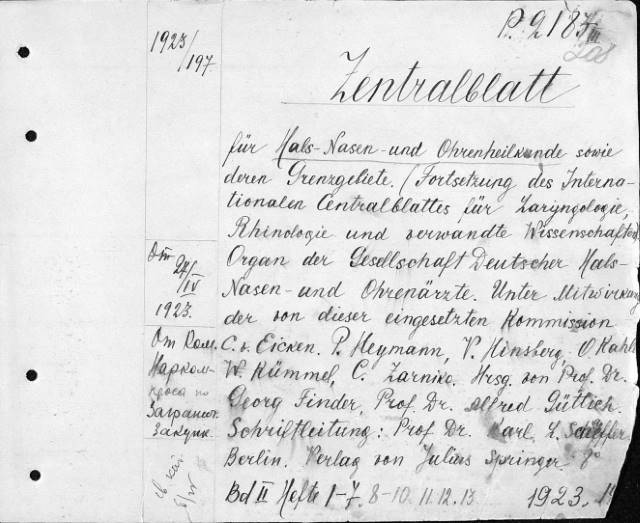 1923/197
P. 2187/III
208
Zentralblatt
für Hals-Nasen-und Ohrenheilkunde sowie
deren Grenzgebiete. (Fortsetzung des Interna-
tionalen Centralblattes für Laryngologie,
Rhinologie und verwandte Wissenschaften
Organ der Gesellschaft Deutscher Hals-
Nasen-und Ohrenärzte. Unter Mitwirkung
der von dieser eingesetzten Kommission
C. v. Eicken. P. Heymann, V. Hinsberg. O Kahler
W. Kümmel, C. Zarniko. Hrsg. von Prof. Dr.
Georg Finder, Prof. Dr. Alfred Güttich.
Schriftleitung: Prof Dr. Karl L. Schäffer.
Berlin. Verlag von Julius Springer 8°
Bd II Hefte 1-7. 8-10. 11. 12. 13 1923.
От 24/IV
1923.
От Ком.
Нарком-
проса по
Загранич.
Закупк.